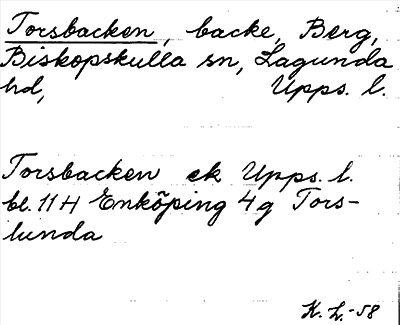 Torsbacken, backe, Berg,
Biskopskulla sn, Lagunda
hd, Upps. l.
Torsbacken ek Upps. l.
bl. 11H Enköping 4g Tors-
lunda
K. L.-58